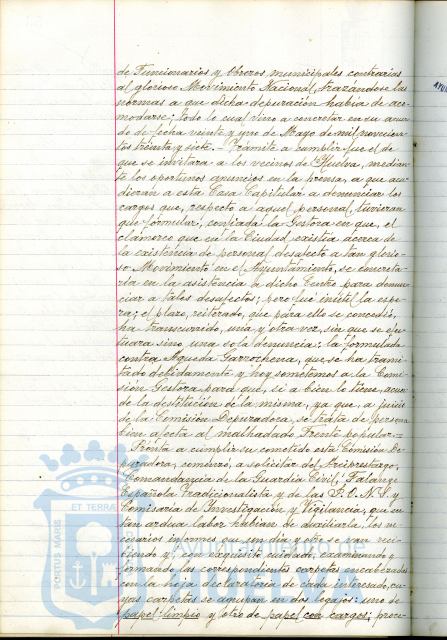 de Funcionarios y Obreros municipales contrarios
al glorioso Movimiento Nacional, trazándose las
normas a que dicha depuración habia de aco-
modarse; todo lo cual vino a concretar en su acuer-
do de fecha veinte y uno de Mayo de mil novecien-
tos treinta y siete. - Trámite a cumplir fué el de
que se invitara a los vecinos de Huelva, median-
te los oportunos anuncios en la prensa, a que acu-
dieran a esta Casa Capitular a denunciar los
cargos que, respecto a aquel personal, tuvieran
que formular, confiada la Gestora en que, el
clamoreo que en la Ciudad existia acerca de
la existencia de personal desafecto a tan glorio-
so Movimiento en el Ayuntamiento, se concreta-
ria en la asistencia a dicho Centro para denun-
ciar a tales desafectos; pero fué inútil la espe-
ra; el plazo, reiterado, que para ello se concedió,
ha transcurrido, una y otra vez, sin que se efec-
tuara sino, una sola denuncia: la formulada
contra Agueda Garrochena, que se ha trami-
tado debidamente y hoy sometemos a la Comi-
sión Gestora para que, si a bien lo tiene, acuer-
de la destitución de la misma, ya que, a juicio
de la Comisión Depuradora, se trata de persona
bien afecta al malhadado Frente popular. -
Pronta a cumplir su cometido esta Comisión De-
puradora, comenzó a solicitar del Arciprestazgo,
Comandancia de la Guardia Civil, Falange
Española Tradicionalista y de las J.O.N.S. y
Comisaria de Investigación y Vigilancia, que en
tan ardua labor habian de auxiliarla, los ne-
cesarios informes que un dia y otro se van reci-
biendo y, con exquisito cuidado, examinando y
formando las correspondientes carpetas encabezadas
con la hoja declaratoria de cada interesado, cu-
yas carpetas se agrupan en dos legajos: uno de
papel limpio y otro de papel con cargos; proce-
PORTUS MARIS
ET TERRAE